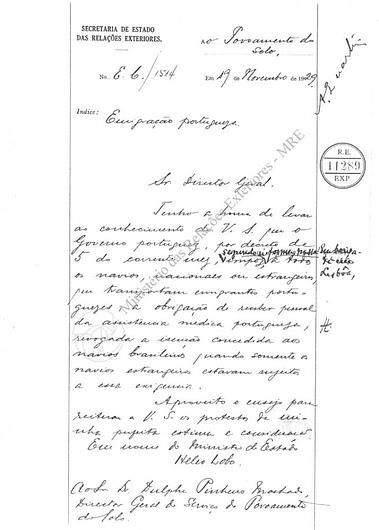 SECRETARIA DE ESTADO
DAS RELAÇÕES EXTERIORES.
Ao Povoamento do
Solo,
No. E.C./1514
Em 19 de Novembro de 1929.
Indice:
Emigração portugueza.
R.E.
11289
EXP.
Sr. Director Geral.
Tenho a honra de levar
ao conhecimento de V. S. que o
Governo portuguez, por decreto de
5 do corrente mez,
segundo informou nossa Embaixa-
da em
Lisbôa,
os navios, nacionaes ou estrangeiros,
que transportam emigrantes portu-
guezes a obrigação de receber pessoal
da assistencia medica portugueza,
revogada a isenção concedida aos
navios brasileiros quando somente os
navios estrangeiros estavam sujeitos
a essa exigencia.
Aproveito o ensejo para
reiterar a V. S. os protestos da mi-
nha perfeita estima e consideração
Em nome do Ministro de Estado
Helio Lobo.
Ao Sr. Dr. Dulphe Pinheiro Machado,
Director Geral do Serviço de Povoamento
do Solo.
Ministério das Relações Exteriores - MRE